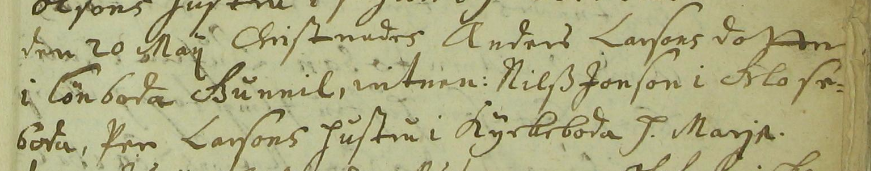 den 20 Maÿ Christnades Anders Larsons dotter
i Lönboda Gunnil, vitnen: Nilß Jonson i Klose-
boda, Per Larsons hustru i Kyrkeboda H. Marja.